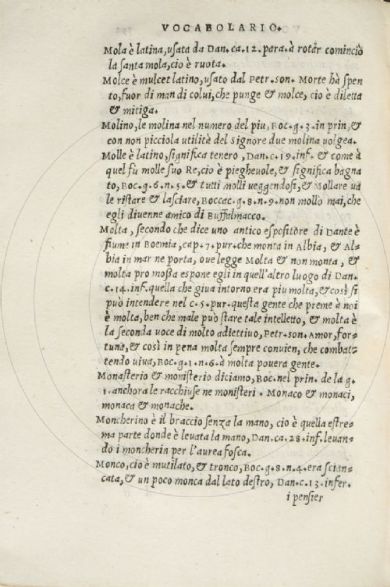 VOCABOLARIO.
Mola è latina, usata da Dan. ca. 12. para. à rotar cominciò
la santa mola, cio è ruota.
Molce è mulcet latino, usato dal Petr. son. Morte hà spen
to, fuor di man di colui, che punge & molce, cio è diletta
& mitiga.
Molino, le molina nel numero del piu, Boc. g. 3. in prin, &
con non picciola utilità del signore due molina uolgea.
Molle è latino, significa tenero, Dan. c. 19. inf. & come à
quel fu molle suo Re, cio è pieghevole, & significa bagna
to, Boc. g. 6. n. 5. & tutti molli ueggendosi, & Mollare ua
le ristare & lasciare, Boccac. g. 8. n. 9. non mollo mai, che
egli divenne amico di Buffalmacco.
Molta, secondo che dice uno antico espositore di Dante è
fiume in Boemia, cap. 7. pur. che monta in Albia, & Al-
bia in mar ne porta, ove legge Molta & non monta, &
molta pro mossa espone egli in quell'altro luogo di Dan.
c. 14. inf. quella che giua intorno era piu molta, & cosi si
può intendere nel c. 5. pur. questa gente che preme à noi
è molta, ben che male può stare tale intelletto, & molta è
la seconda voce di molto adiettivo, Petr. son. Amor, for-
tuna, & così in pena molta sempre convien, che combatt
tendo viva, Boc. g. 1. n. 6. à molta povera gente.
Monasterio & monisterio diciamo, Boc. nel prin. de la g.
1. anchora le racchiuse ne monisteri. Monaco & monaci,
monaca & monache.
Moncherino è il braccio senza la mano, cio è quella estre-
ma parte donde è levata la mano, Dan. ca. 28. inf. levan-
do i moncherin per l'aurea fosca.
Monco, cio è mutilato, & tronco, Boc. g. 8. n. 4. era scian-
cata, & un poco monca dal lato destro, Dan. c. 13. infer.
i pensier